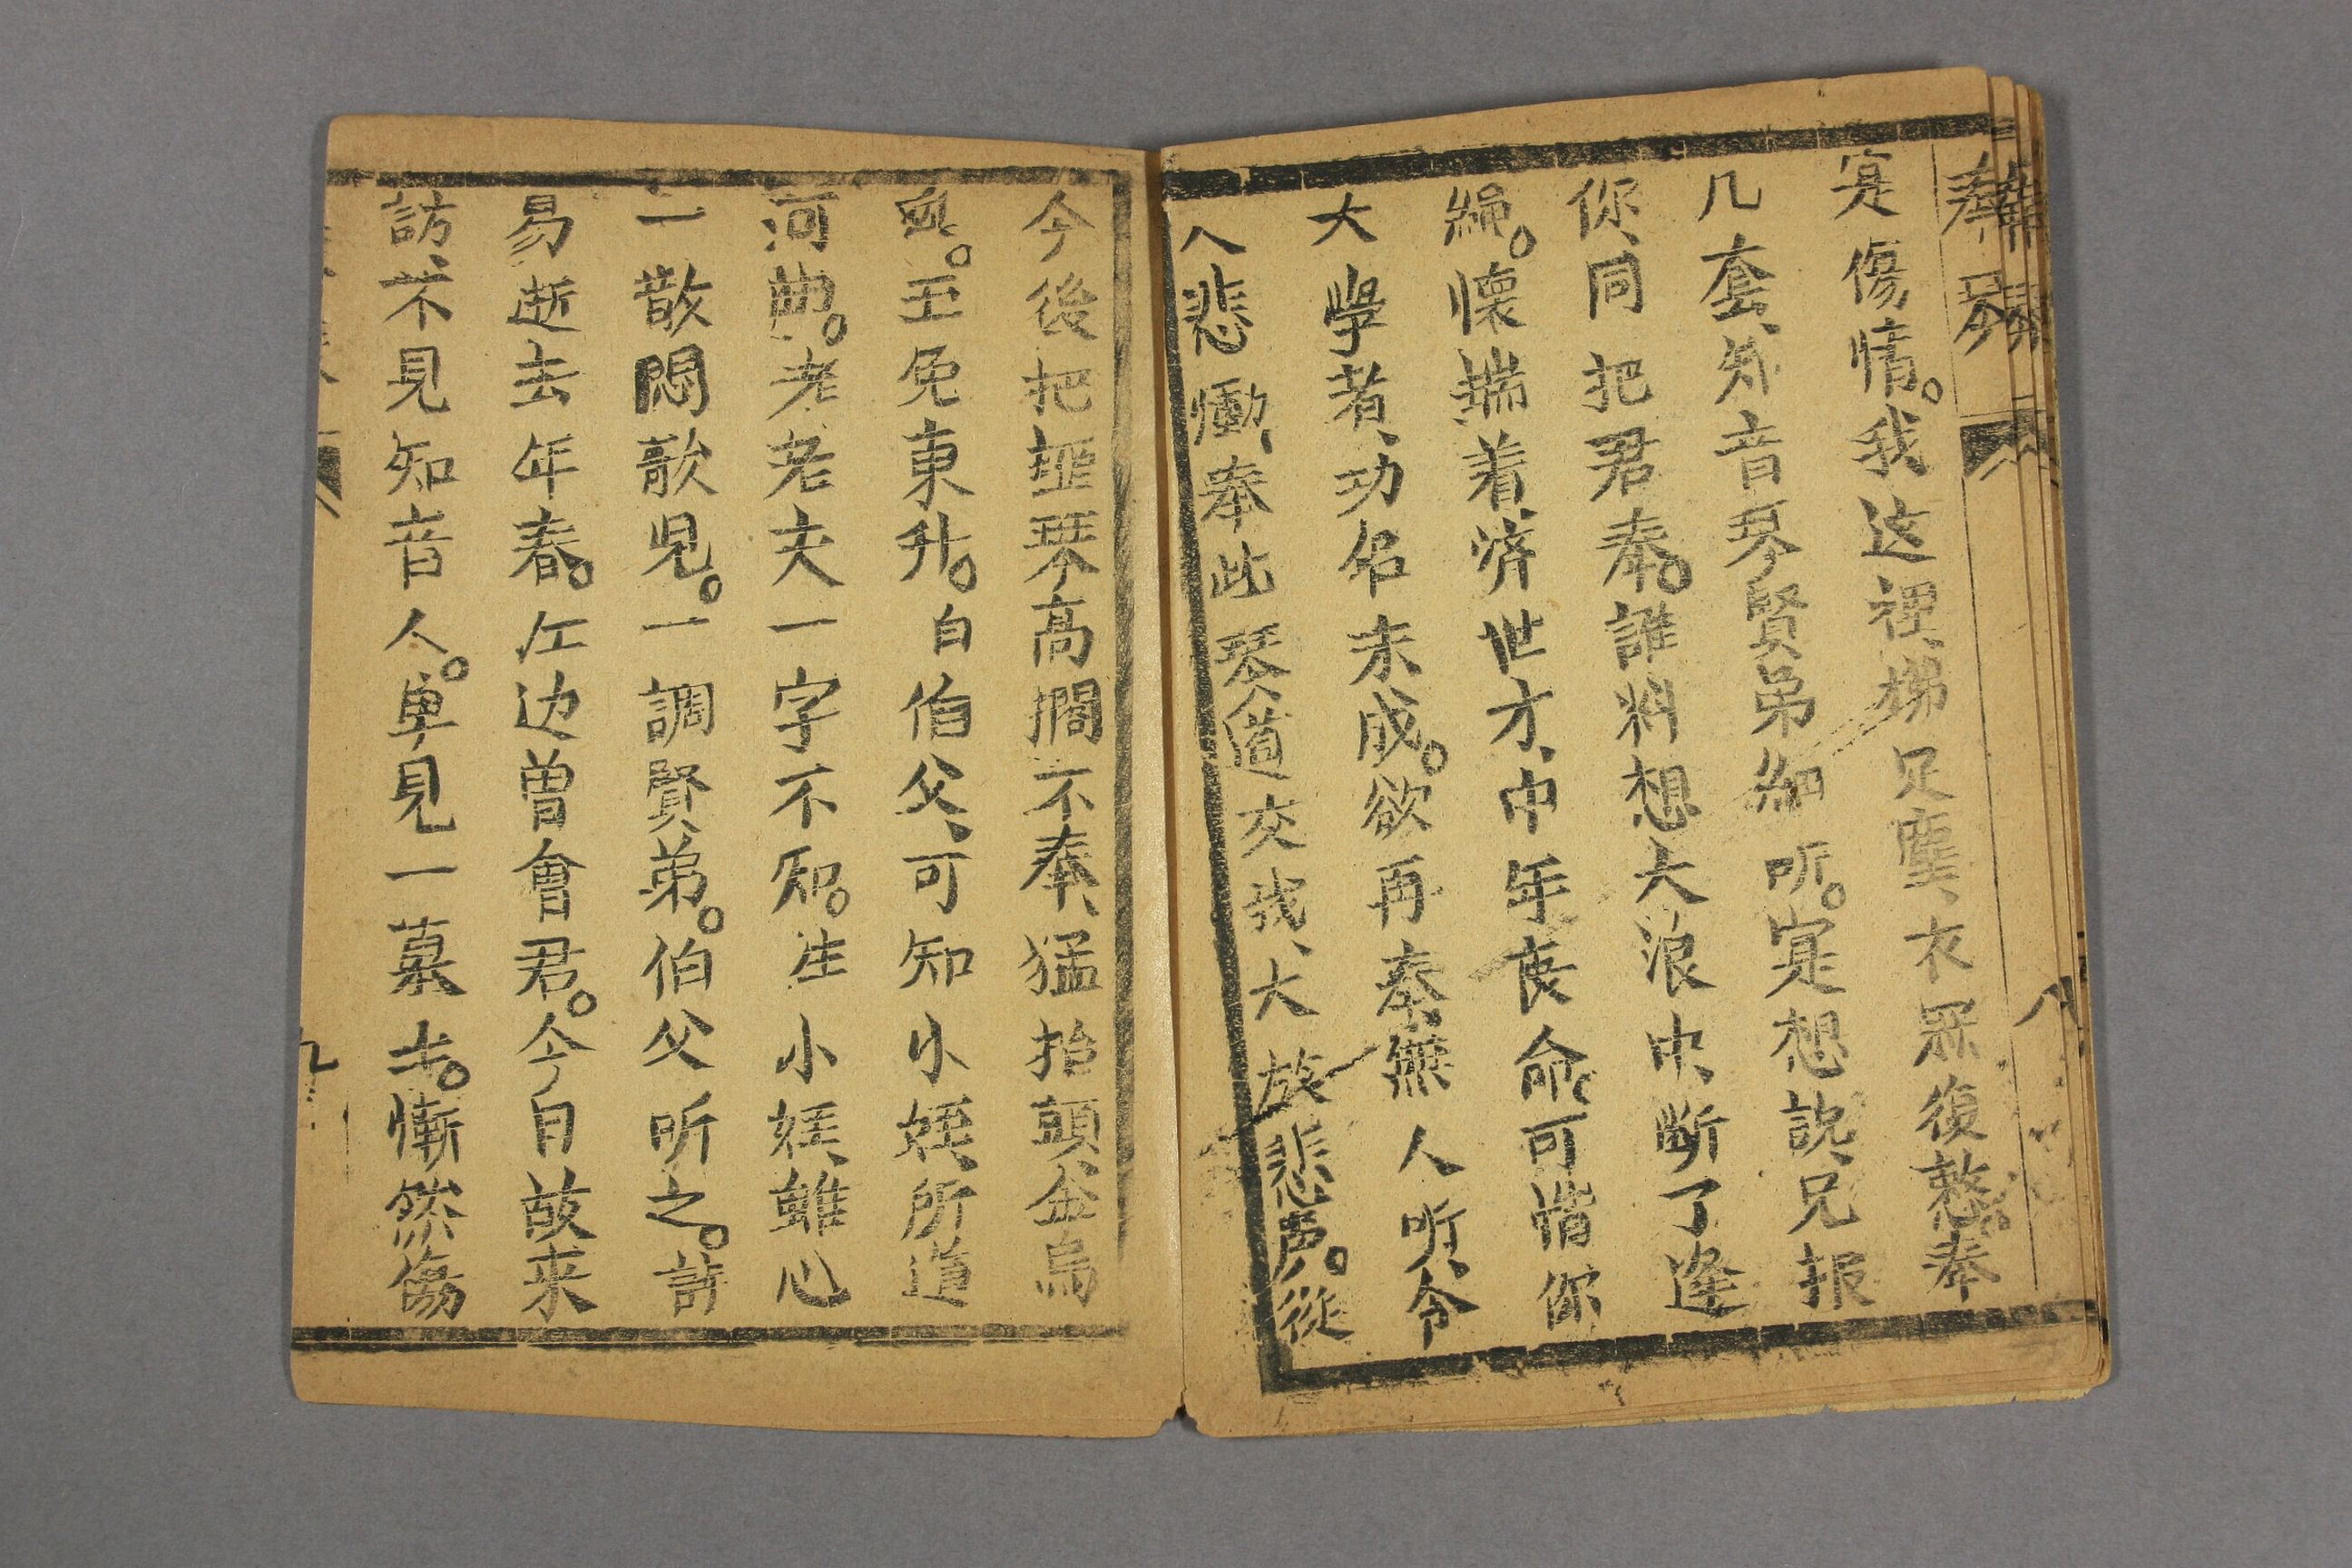 奉琴
八
寔傷情。我这裡、梯足塵、衣冠復整。奉
几套、知音琴、賢弟細听。寔想說、兄报
你、同把君奉。誰料想、大浪中、断了逢
歸。懷揣着、濟世才、中年丧命。可惜你
大學者、功名未成。欲再奉、無人听、令
人悲慟、奉此琴、道交我、大放悲声。從
今後把 琴高擱不奉、猛抬頭、金烏
玉免東升。白伯父、可知小姪、所道
河曲。老老夫一字不知。生小姪、雖心
一散悶歌児。一調賢弟。伯父听之。詩
易逝去年春。江边曾會君。今日故来
訪、不見知音人。单見一墓土。慚然傷
九